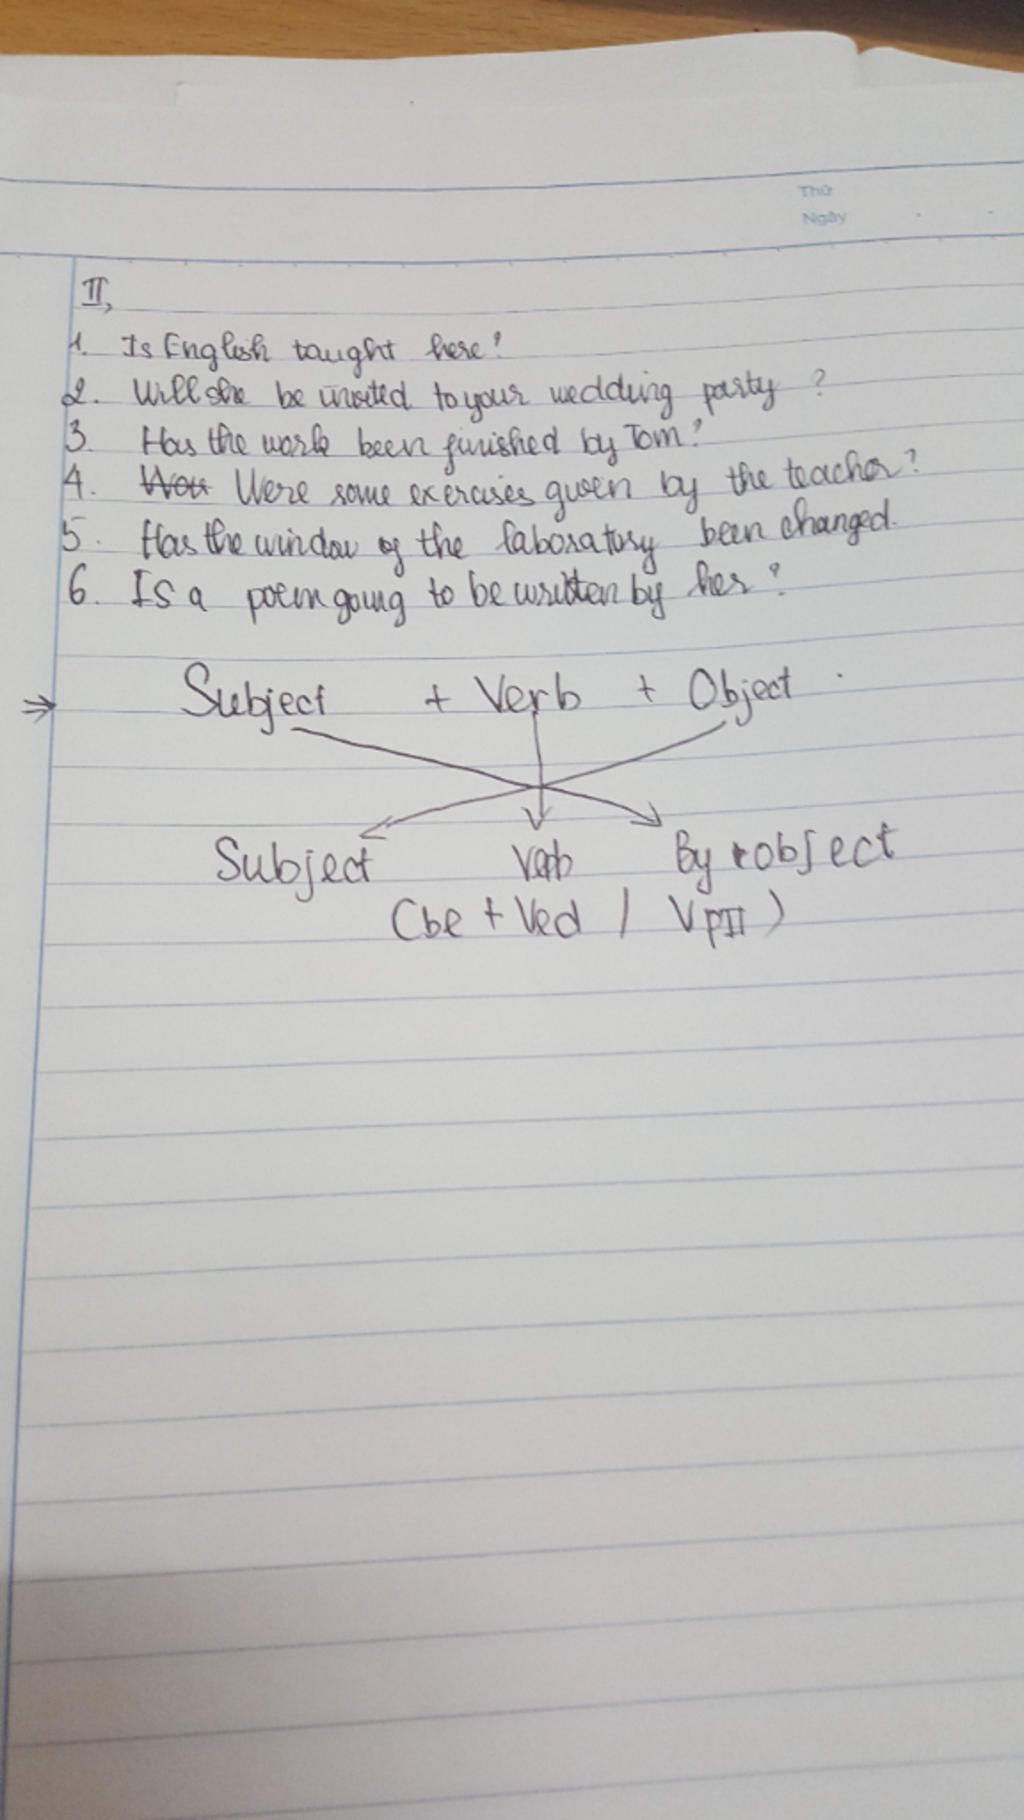 Thứ
Ngày
II,
1. Is English taught here?
2. Will she be invited to your wedding party ?
3. Has the work been finished by Tom?
4. Were some exercises given by the teacher?
5. Has the window of the laboratory been changed.
6. Is a poem going to be written by her?
⇒ Subject + Verb + Object .
Subject Verb By + object
(be + Ved / VpII)